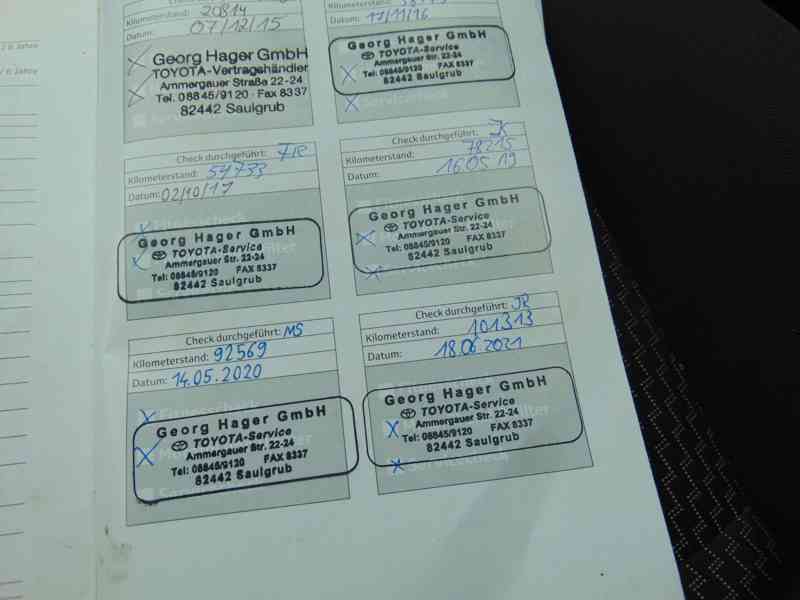 / 6 Jahre
/ 6 Jahre
Kilometerstand: 20814
Datum: 07/12/15
Georg Hager GmbH
TOYOTA-Vertragshändler
Ammergauer Straße 22-24
Tel. 08845/9120 · Fax 8337
82442 Saulgrub
Kilometerstand:
Datum: 17/11/16
Georg Hager GmbH
TOYOTA-Service
Ammergauer Str. 22-24
Tel: 08845/9120 FAX 8337
82442 Saulgrub
Servicecheck
Check durchgeführt:
Kilometerstand: 54733
Datum: 02/10/17
Georg Hager GmbH
TOYOTA-Service
Ammergauer Str. 22-24
Tel: 08845/9120 FAX 8337
82442 Saulgrub
Check durchgeführt:
Kilometerstand: 78215
Datum: 16.05.19
Georg Hager GmbH
TOYOTA-Service
Ammergauer Str. 22-24
Tel: 08845/9120 FAX 8337
82442 Saulgrub
Check durchgeführt: MS
Kilometerstand: 92569
Datum: 14.05.2020
Fitnesscheck
Georg Hager GmbH
TOYOTA-Service
Ammergauer Str. 22-24
Tel: 08845/9120 FAX 8337
82442 Saulgrub
Check durchgeführt: JR
Kilometerstand: 101313
Datum: 18.06.2021
Georg Hager GmbH
TOYOTA-Service
Ammergauer Str. 22-24
Tel: 08845/9120 FAX 8337
82442 Saulgrub
Servicecheck